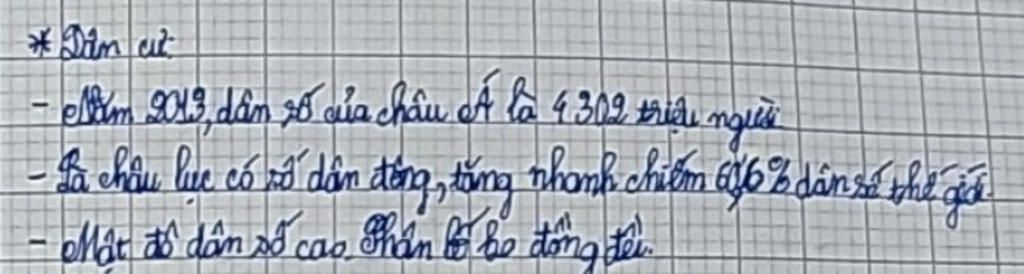 * Dân cư:
- Năm 2013, dân số của châu Á là 4 302 triệu người
- Là châu lục có số dân đông, tăng nhanh chiếm 60,6% dân số thế giới.
- Mật độ dân số cao. Phân bố ko đồng đều.